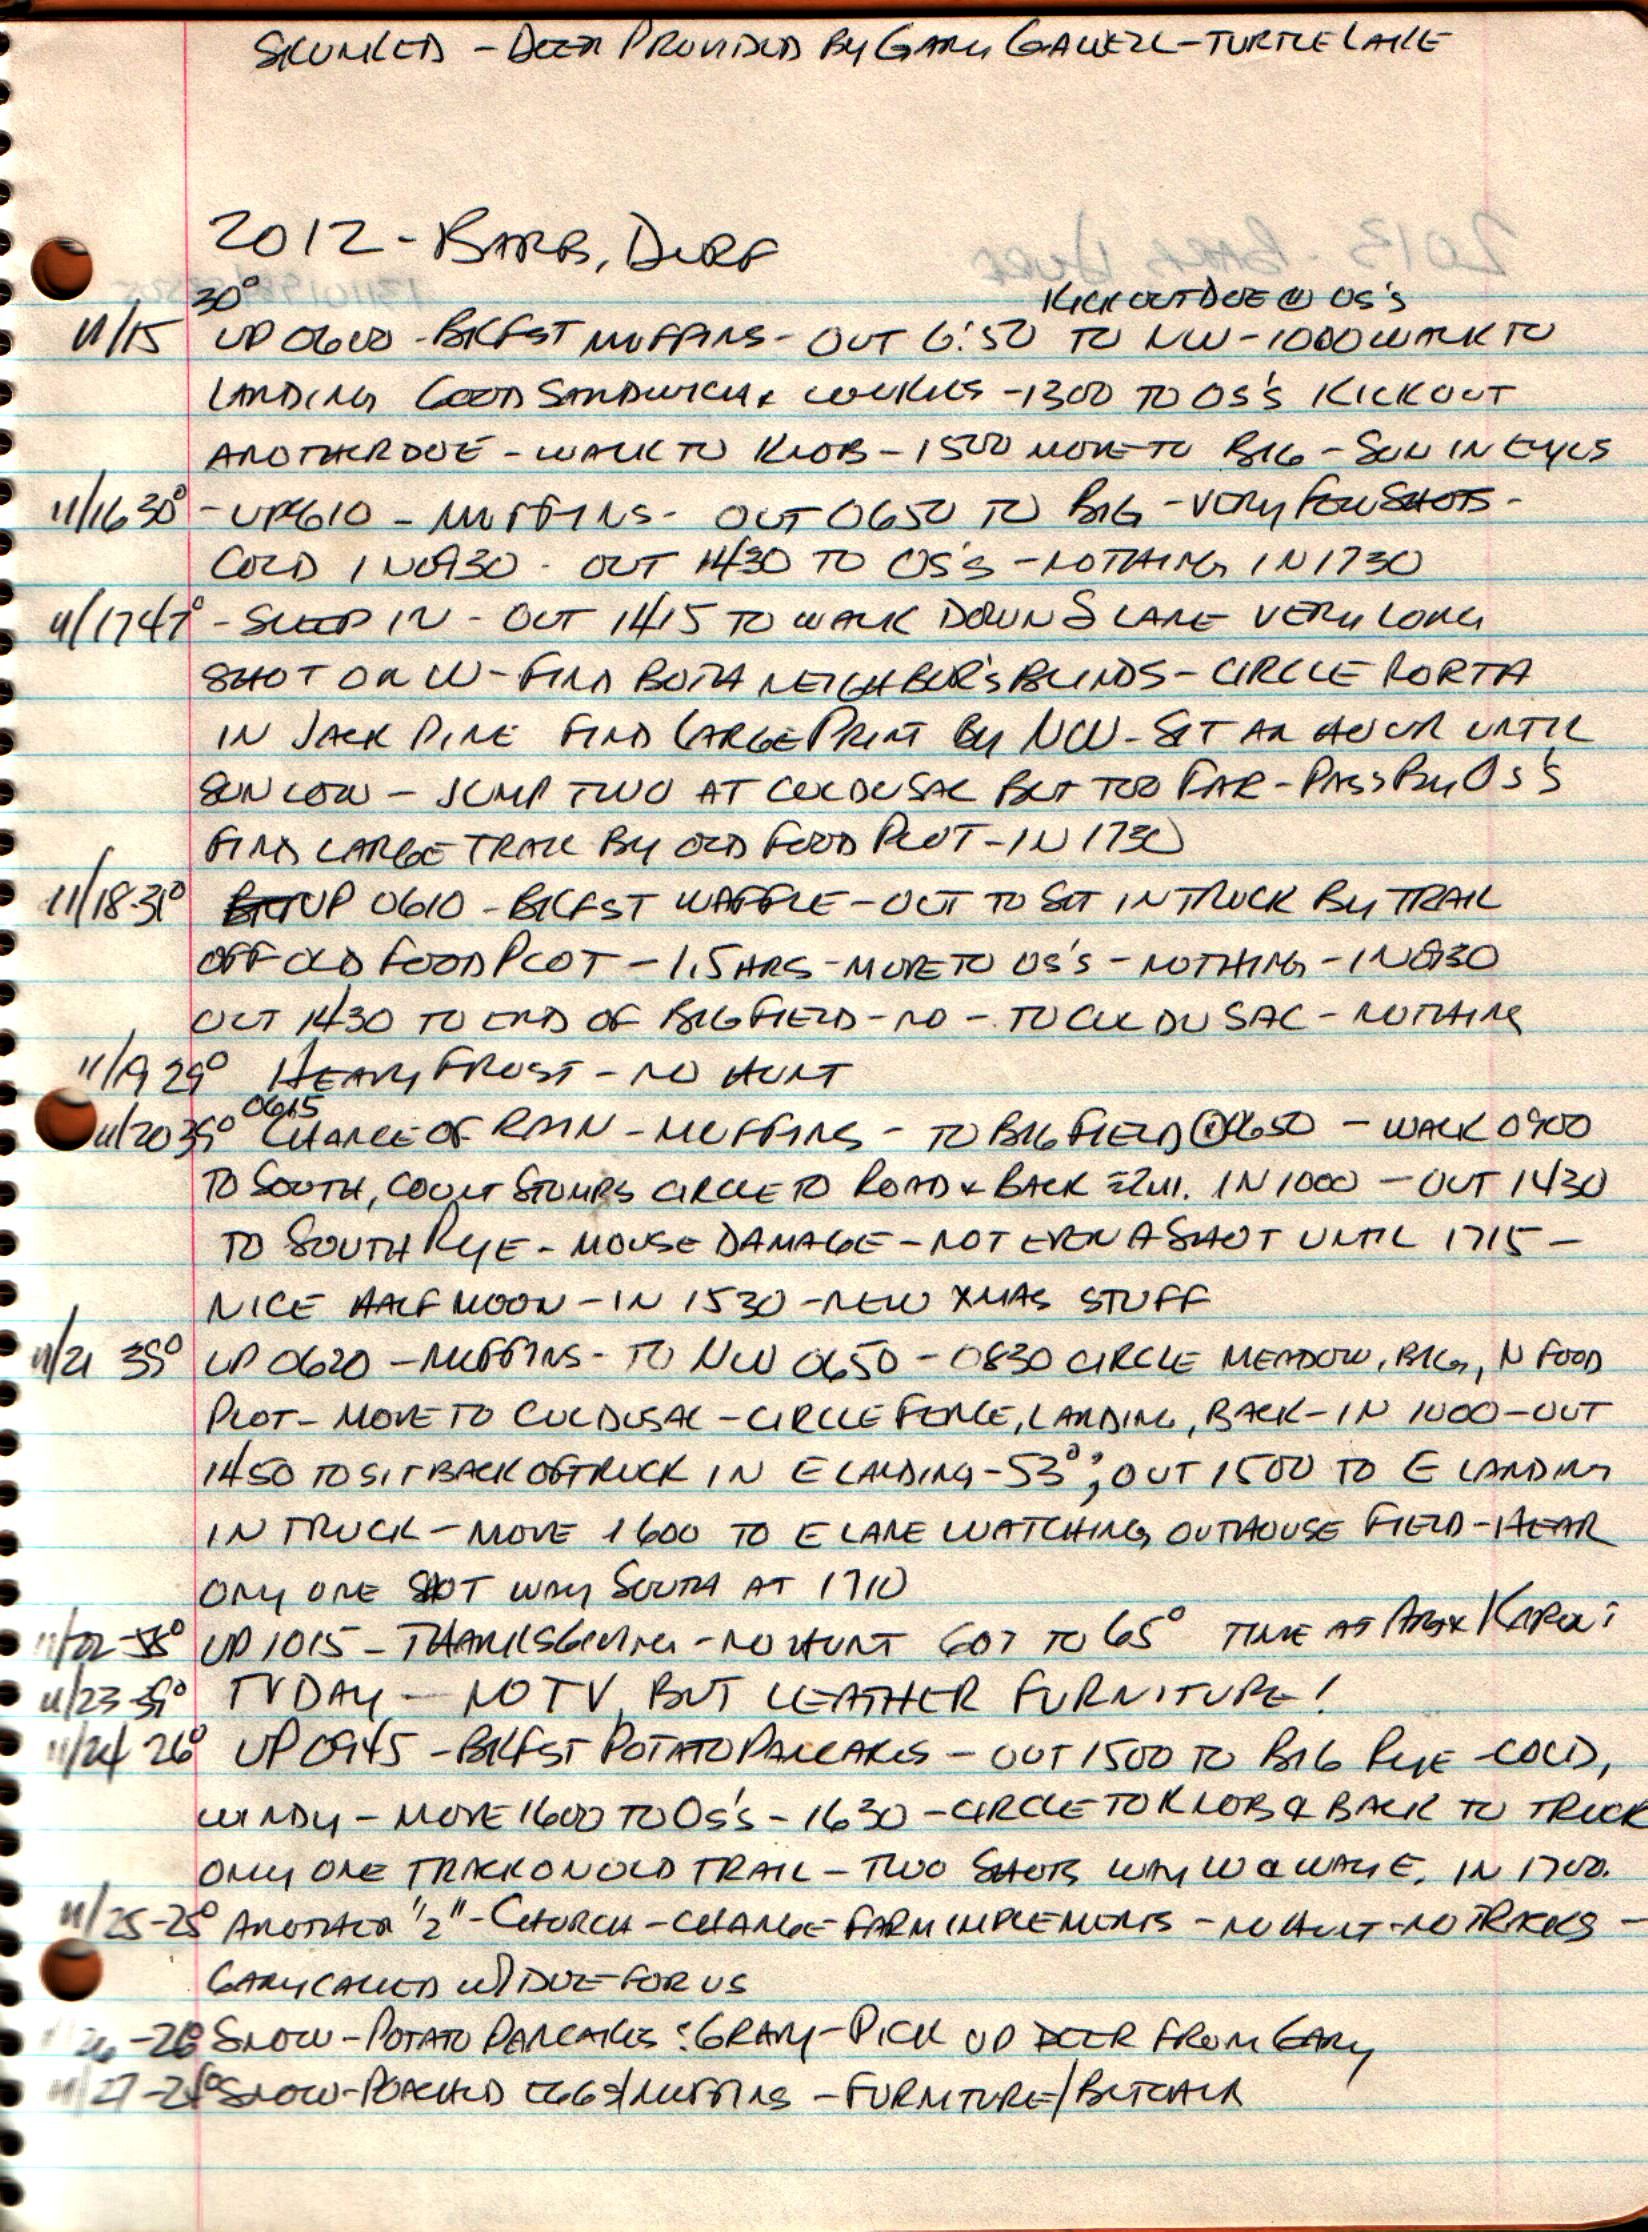 SKUNKED - DEER PROVIDED BY GARY - TURTLE LAKE
2012 - BARB, DURF
30° KICK OUT DOE @ OS'S
11/15 UP 0600 - BKFST MUFFINS - OUT 6:50 TO NW - 1000 WALK TO
LANDING GOOD SANDWICH & COOKIES - 1300 TO OS'S KICK OUT
ANOTHER DOE - WALK TO KNOB - 1500 MOVE TO BIG - SUN IN EYES
11/16 30° - UP 0610 - MUFFINS - OUT 0650 TO BIG - VERY FEW SHOTS -
COLD IN 0930 - OUT 1430 TO OS'S - NOTHING IN 1730
11/17 47° - SLEEP IN - OUT 1415 TO WALK DOWN S LANE VERY LONG
SHOT ON W - FIND BOTH NEIGHBOR'S BLINDS - CIRCLE NORTH
IN JACK PINE FIND LARGE PRINT BY NW - SIT AN HOUR UNTIL
SUN LOW - JUMP TWO AT CULDUSAC BUT TOO FAR - PASS BY OS'S
FIND LARGE TRACK BY OLD FOOD PLOT - IN 1730
11/18 - 31° UP 0610 - BKFST WAFFLE - OUT TO SIT IN TRUCK BY TRAIL
OFF OLD FOOD PLOT - 1.5 HRS - MOVE TO OS'S - NOTHING - IN 0930
OUT 1430 TO END OF BIG FIELD - NO - TO CUL DU SAC - NOTHING
11/19 29° HEAVY FROST - NO HUNT
0615
11/20 35° CHANCE OF RAIN - MUFFINS - TO BIG FIELD @ 0650 - WALK 0900
TO SOUTH, COUNT STUMPS CIRCLE TO ROAD & BACK ≈ 2 MI. IN 1000 - OUT 1430
TO SOUTH RYE - MOUSE DAMAGE - NOT EVEN A SHOT UNTIL 1715 -
NICE HALF MOON - IN 1530 - NEW XMAS STUFF
11/21 35° UP 0620 - MUFFINS - TO NW 0650 - 0830 CIRCLE MEADOW, BIG, N FOOD
PLOT - MOVE TO CULDUSAC - CIRCLE FENCE, LANDING, BACK - IN 1000 - OUT
1450 TO SIT BACK OF TRUCK IN E LANDING - 53°; OUT 1500 TO E LANDING
IN TRUCK - MOVE 1600 TO E LANE WATCHING OUTHOUSE FIELD - HEAR
ONLY ONE SHOT WAY SOUTH AT 1710
11/22 - 55° UP 1015 - THANKSGIVING - NO HUNT GOT TO 65° TIME AT &
11/23 - 39° TV DAY - NO TV, BUT LEATHER FURNITURE!
11/24 26° UP 0945 - BKFST POTATO PANCAKES - OUT 1500 TO BIG RYE - COLD,
WINDY - MOVE 1600 TO OS'S - 1630 - CIRCLE TO KNOB & BACK TO TRUCK
ONLY ONE TRACK ON OLD TRAIL - TWO SHOTS WAY W & WAY E. IN 1700.
11/25 - 25° ANOTHER "2" - CHURCH - CHANGE FARM IMPLEMENTS - NO HUNT - NO TRACKS -
GARY CALLED W/ DOE FOR US
26 - 26° SNOW - POTATO PANCAKES : GRAVY - PICK UP DEER FROM GARY
11/27 - SNOW - POACHED EGGS/MUFFINS - FURNITURE/BUTCHER